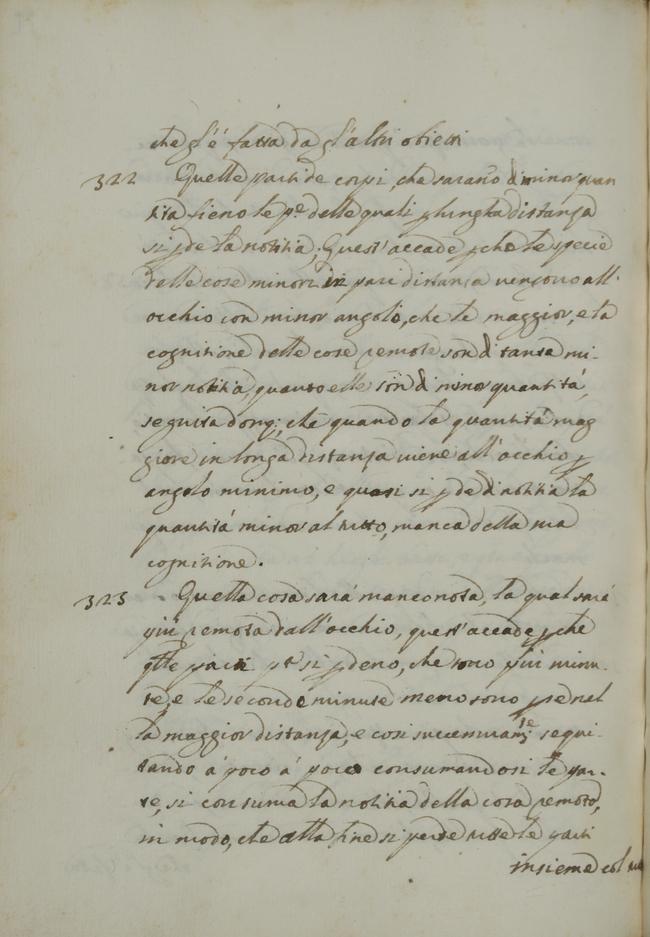 che gl'è fatta da gl'altri obietti
322 Quelle parti de corpi, che sarano di minor quan
tità fieno le p.e delle quali p lungha distanza
si pde la notitia; Quest'accade pche le specie
delle cose minori in pari distanza vengono all'
occhio con minor angolo, che le maggior, e la
cognitione delle cose remote son di tanta mi-
nor notitia, quanto elle son di minor quantità,
seguita donq; che quando la quantità mag
giore in longa distanza viene all'occhio p
angolo minimo, e quasi si pde di notitia la
quantità minor al tutto, manca della sua
cognitione.
323 Quella cosa sarà manco nota, la qual sarà
più remota dall'occhio, quest'accade, pche
qlle parti p.e si pdeno, che sono più minu-
te, e le seconde minute meno sono pse nel
la maggior distanza, e così successivam.te segui-
tando à poco à poco consumandosi le par-
te, si consuma la notitia della cosa remota,
in modo, che alla fine si perde tutte le parti
insieme col